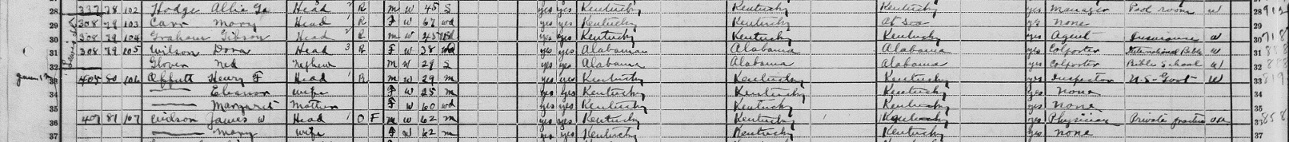 28 337 78 102 Hodge Allie Head 1 R m W 45 S yes yes Kentucky Kentucky Kentucky yes Manager Pool room W 28
29 308 79 103 Carr Mary Head 1 R f W 67 wd yes yes Kentucky Kentucky At Sea yes none 29
30 308 79 104 Graham Gibson Head 2 R m W yes yes Kentucky Kentucky Kentucky yes Agent Insurance W 30
31 308 79 105 Wilson Dora Head 3 R f W 38 yes yes Alabama Alabama Alabama yes Colporter International Bible W 31
32 Glover Ned Nephew m W 28 S yes yes Alabama Alabama Alabama yes Colporter Bible School W 32
33 405 80 106 Offutt Henry F Head 1 R m W 29 m yes yes Kentucky Kentucky Kentucky yes Inspector U.S. Govt W 33
34 Eleanor wife f W 25 m yes yes Kentucky Kentucky Kentucky yes None 34
35 Margaret Mother f W 60 wd yes yes Kentucky Kentucky Kentucky yes None 35
36 407 81 107 Wilson James W Head 1 O F m W 62 m yes yes Kentucky Kentucky Kentucky yes Physician Private practice oa 36 858
37 Mary wife f W 62 m yes yes Kentucky Kentucky Kentucky yes none 37